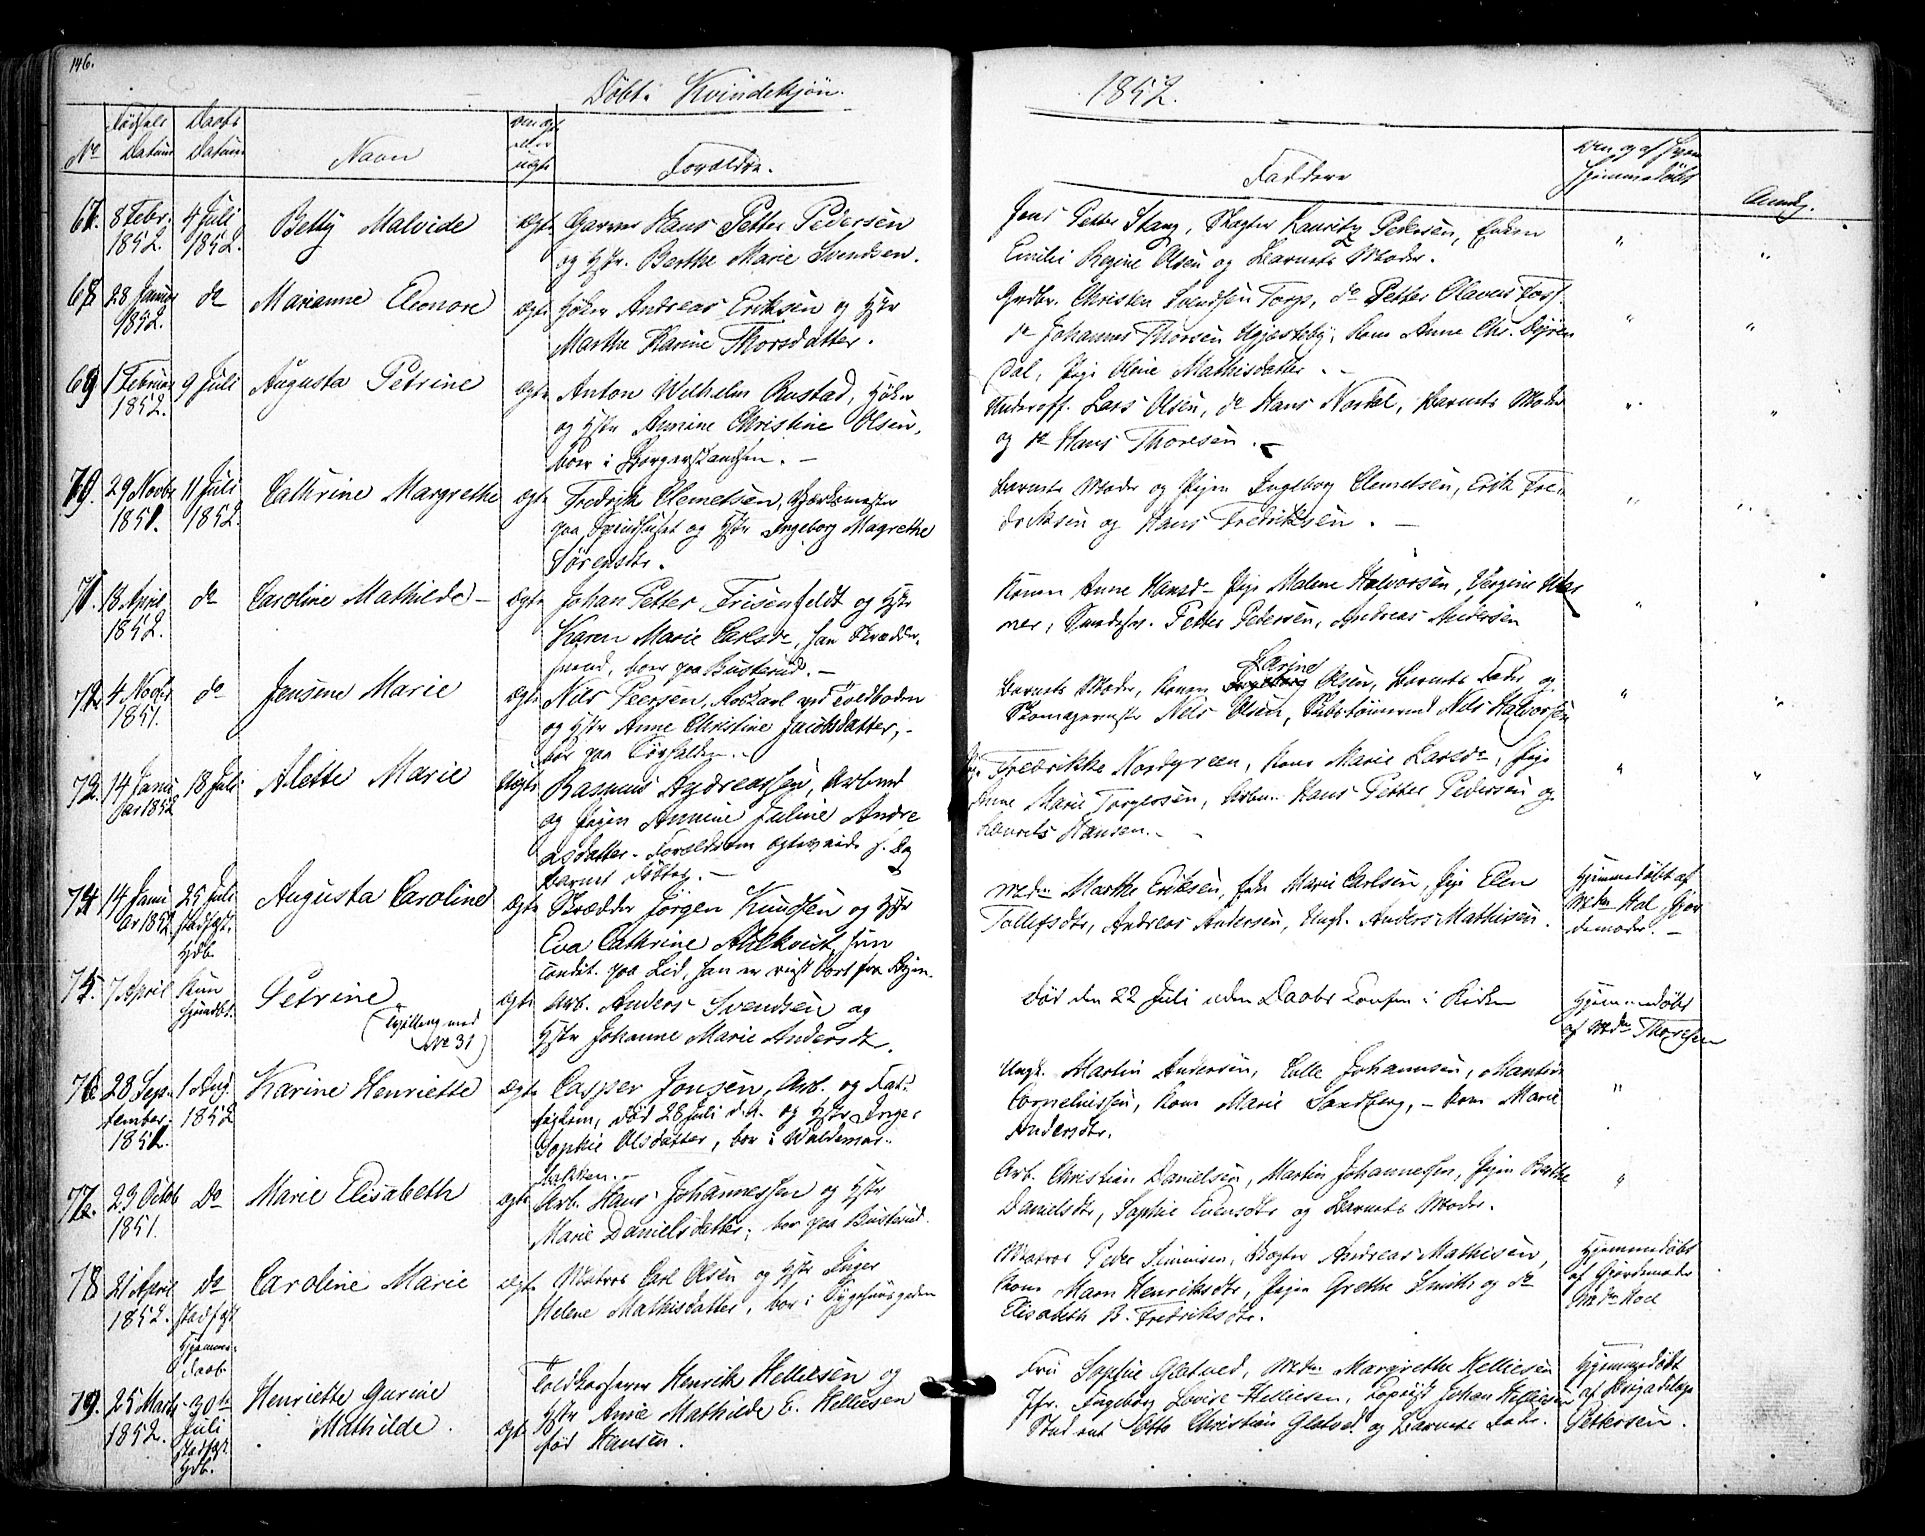 146.
Döbte Kvindekjön.
1852.
No
Födsels Datum
Daabs Datum
Navn
om ægte eller uægte
Forældre.
Faddere
Hjemmedöbt
Anmkg.
67. 8 Febr. 1852. 4 Juli 1852. Betty Malvide ægte Garver Hans Petter Pedersen
og Hstr. Berthe Marie Svendsen.
Jens Petter Stang, Slagter Lauritz Pedersen, Enken
Emilie Regine Olsen og Barnets Moder.
68 28 Januar 1852. do Marianne Eleonore ægte Höker Andreas Eriksen og Hstr
Marthe Karine Thorsdatter.
Grdbr. Christen Svendsen Torp, do Petter Olaves Foss.
do Johannes Thorsen, Kone Anne Chr.
dal, Pige Oline Mathisdatter.
69 1 Februar 1852. 9 Juli Augusta Petrine ægte Anton Wilhelm Rustad, Höker
og Hstr Annine Christine Olsen,
boer i Borgerskandsen.
Underoff. Lars Olsen, do Hans Nordal, Barnets Moder
og do Hans Thoresen.
70. 29 Novbr 1851. 11 Juli 1852. Cathrine Margrethe ægte Fredrik Clemetsen,
paa Spindhuset og Hstr Ingeborg Magrethe
Sörensdtr.
Barnets Moder og Pigen Ingeborg Clemetsen, Erik Fre-
driksen og Hans Fredriksen.
71. 18 April 1852. do Caroline Mathilde ægte Johan Petter Frisenfeldt og Hstr
Karen Marie Carlsdr, han Skrædder-
svend, boer paa Busterud.
Konen Anne Hansd Pige Malene Halvorsen,
Petter Pedersen, Andreas Andersen
72 4 Novbr 1851. do Jensine Marie ægte Nils Peersen, Roskarl ved Toldboden
og Hstr Anne Christine Jacobsdatter,
Barnets Moder, Konen Karine Olsen, Barnets Fader og
Skomagermester Nils Olsen, Skibstömmermd Nils Halvorsen
73. 14 Januar 1852 18 Juli Alette Marie Uægte Rasmus Andreassen, Arbmd
og Pigen Annine Juline Andre
asdatter. Forældrene ægteviede s. Dag
Barnet döbtes.
Fredrikke Nordgreen, Kone Marie Larsdr, Pige
Anne Marie Torgersen, Arbm. Hans Petter Pedersen og
Laurits Hansen.
74 14 Januar 1852 25 Juli stadfest. Hdb Augusta Caroline ægte Skrædder Jörgen Knudsen og Hstr
Eva Cathrine Ahlkvist, hun
condit. paa Lid, han er reist bort fra Byen.
Mdm Marthe Eriksen, Marie Carlsen, Pige Elen
Tollefsdtr, Andreas Andersen, Ungk. Anders Mathisen.
Hjemmedöbt af
Mdm Hol, Gjor
demoder.
75. 7 April Kun hjemdbt. Petrine. ægte Arb. Anders Svendsen og
(Tvilling med
No 31)
Hstr Johanne Marie Andersdtr.
död den 22 Juli uden Daabs i Kirken
Hjemmedöbt
af Mdm Thoresen
76 28 September 1851. 1 Aug 1852 Karine Henriette ægte Casper Jonsen, Arb. og Fat-
tiglem, död 28 Juli d.A. og Hstr Inger
Sophie Olsdatter, bor i Waldemar-
bakken.
Ungk. Martin Andersen, Calle Johannsen, Martin
Corneliussen, Kone Marie Sandberg, Kone Marie
Andersdtr.
77. 23 Octob 1851. Do Marie Elisabeth ægte Arb. Hans Johannessen og Hstr
Marie Danielsdatter; bor paa Busterud.
Arb. Christian Danielsen, Martin Johannessen, Pigen Berthe
Danielsdtr, Sophie Evensdtr og Barnets Moder.
78 21 April 1852. do stadfest Hjemmedaab Caroline Marie ægte Matros Carl Olsen og Hstr Inger
Helene Mathisdatter, bor i Sygehusgaden
Matros Peder Simensen, Andreas Mathisen,
Kone Maren Henriksdtr, Pigen Grethe Smith og do
Elisabeth B. Fredriksdtr.
Hjemmedöbt
af Gjordemoder
Mdm Hol
79. 25 Marts 1852. 30te Juli stadfest Hdb. Henriette Gurine
Mathilde. ægte Toldkasserer Henrik Helliesen og
Hstr Anne Mathilde E. Helliesen
föd Hansen.
Fru Sophie Glatved, Mdm Margrethe Helliesen
Jfr. Ingeborg Lovise Helliesen, Johan Helliesen
Student Otto Christian Glatved og Barnets Fader.
Hjemmedöbt
af
Pettersen.